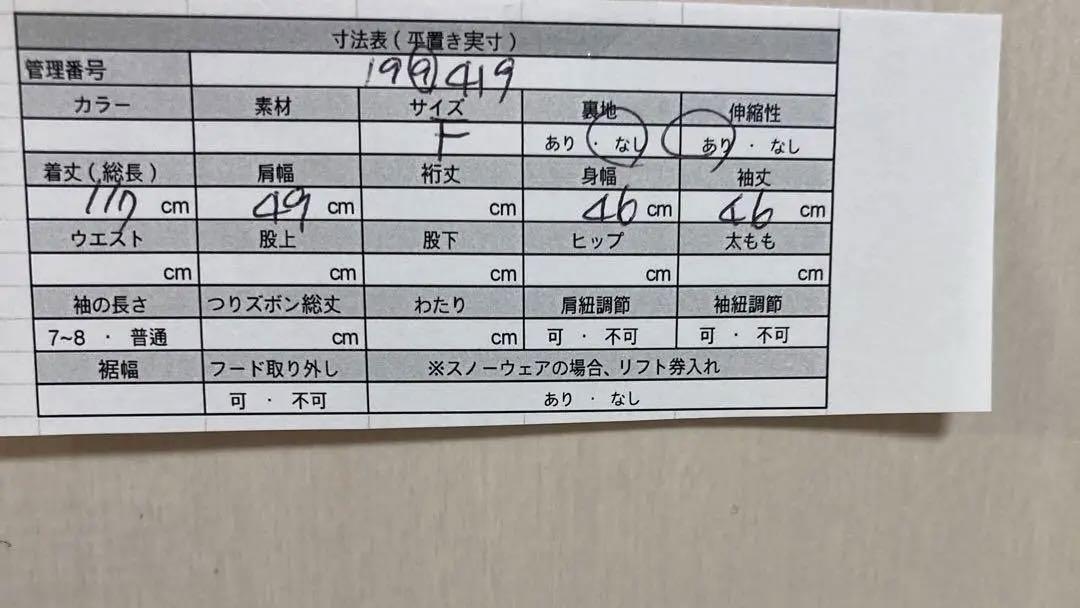 寸法表(平置き実寸)
管理番号 199419
カラー 素材 サイズ 裏地 伸縮性
F あり ・ なし あり ・ なし
着丈(総長) 肩幅 裄丈 身幅 袖丈
117 cm 49 cm cm 46 cm 46 cm
ウエスト 股上 股下 ヒップ 太もも
cm cm cm cm cm
袖の長さ つりズボン総丈 わたり 肩紐調節 袖紐調節
7~8 ・ 普通 cm cm 可 ・ 不可 可 ・ 不可
裾幅 フード取り外し ※スノーウェアの場合、リフト券入れ
可 ・ 不可 あり ・ なし